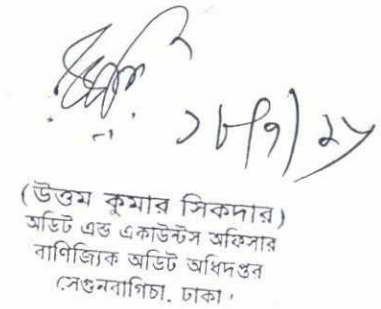 (উত্তম কুমার সিকদার)
অডিট এন্ড একাউন্টস অফিসার
বাণিজ্যিক অডিট অধিদপ্তর
সেগুনবাগিচা, ঢাকা।